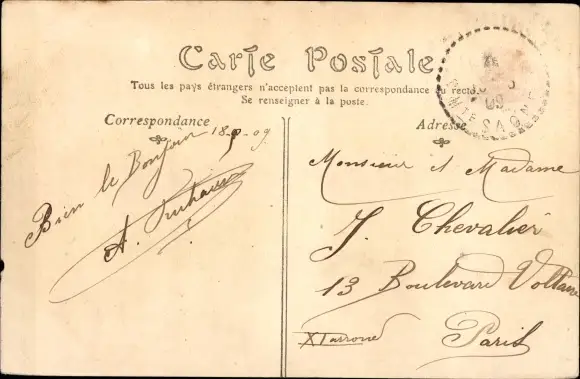 Carte Postale
Tous les pays étrangers n'acceptent pas la correspondance au recto.
Se renseigner à la poste.
Correspondance
Adresse
18-9-09
Bien le Bonjour
A.
Monsieur et Madame
J. Chevalier
13 Boulevard Voltaire
Paris
09
SAONE